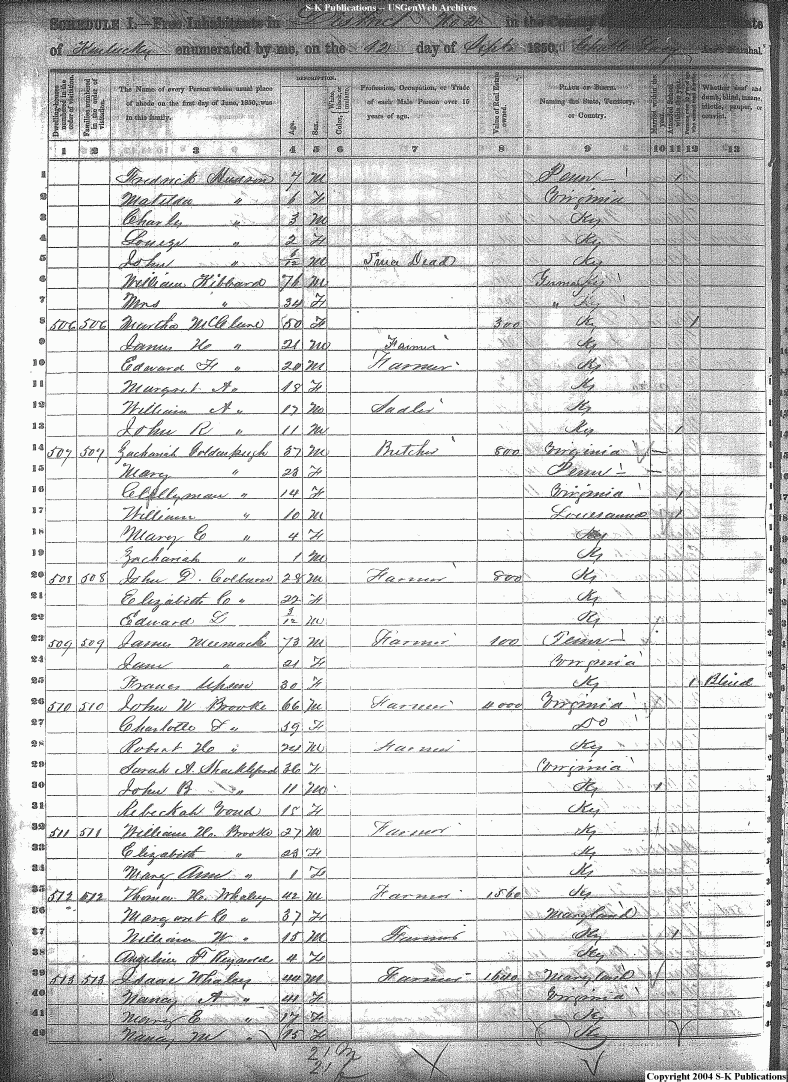 S-K Publications – USGenWeb Archives
SCHEDULE I.—Free Inhabitants in District No 2 in the County of State
of Kentucky enumerated by me, on the 12 day of Sept. 1850. Ass't Marshal.
Dwelling-houses numbered in the order of visitation. Families numbered in the order of visitation. The Name of every Person whose usual place of abode on the first day of June, 1850, was in this family. DESCRIPTION. Age. Sex. Color, White, black, or mulatto. Profession, Occupation, or Trade of each Male Person over 15 years of age. Value of Real Estate owned. PLACE OF BIRTH. Naming the State, Territory, or Country. Married within the year. Attended School within the year. Whether deaf and dumb, blind, insane, idiotic, pauper, or convict.
1 2 3 4 5 6 7 8 9 10 11 12 13
1 Fredrick Hudson 7 M Penn 1
2 Matilda " 6 F Virginia
3 Charly " 3 M Ky
4 Loueza " 2 F Ky
5 John " 6/12 M Dead Ky
6 William Hibbard 76 M Germany
7 Mrs " 34 F " Ky
8 506 506 Martha McClure 50 F 300 Ky 1
9 James H " 21 M Farmer Ky
10 Edward F " 20 M Farmer Ky
11 Margret A " 18 F Ky
12 William A " 17 M Sadler Ky
13 John R " 11 M Ky 1
14 507 507 Zachariah 37 M Butcher 800 Virginia
15 Mary " 23 F Penn
16 " 14 F Virginia 1
17 William " 10 M Louisanna 1
18 Mary C " 4 F Ky
19 Zachariah " 1 M Ky
20 508 508 John D. Colburn 28 M Farmer 800 Ky
21 Elizabeth C " 22 F Ky
22 Edward D " 3/12 M Ky
23 509 509 James 73 M Farmer 100 Penn
24 Jane " 21 F Virginia
25 Frances Upson 30 F Ky 1 Blind
26 510 510 John W Brooke 66 M Farmer 4000 Virginia
27 Charlotte F " 59 F Do
28 Robert H " 24 M Farmer Ky
29 Sarah A. Shackleford 36 F Virginia
30 John B " 11 M Ky 1
31 Rebeckah 15 F Ky
32 511 511 William H. Brooke 27 M Farmer Ky
33 Elizabeth " 23 F Ky
34 Mary Ann " 1 F Ky
35 512 512 Thomas H. Whaley 42 M Farmer 1560 Ky
36 Margaret C " 37 F Maryland
37 William W " 15 M Farmer Ky 1
38 Angeline F Reynolds 4 F Ky
39 513 513 Isaac Whaley 44 M Farmer 1640 Maryland
40 Nancy A " 41 F Virginia
41 Merry E " 17 F Ky
42 Nancy M " 15 F Ky
21 M
21 F
Copyright 2004 S-K Publications